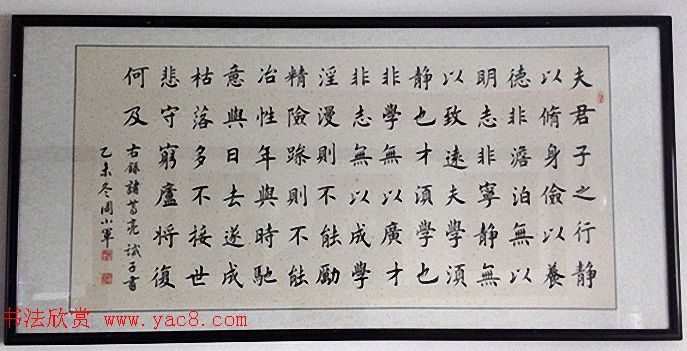 夫君子之行静
以脩身儉以養
德非澹泊無以
明志非寧静無
以致遠夫學須
静也才須學也
非學無以廣才
非志無以成學
淫漫則不能勵
精險躁則不能
冶性年與時馳
意與日去遂成
枯落多不接世
悲守窮廬將復
何及
右錄諸葛亮誡子書
乙未冬周小軍
书法欣赏 www.yac8.com